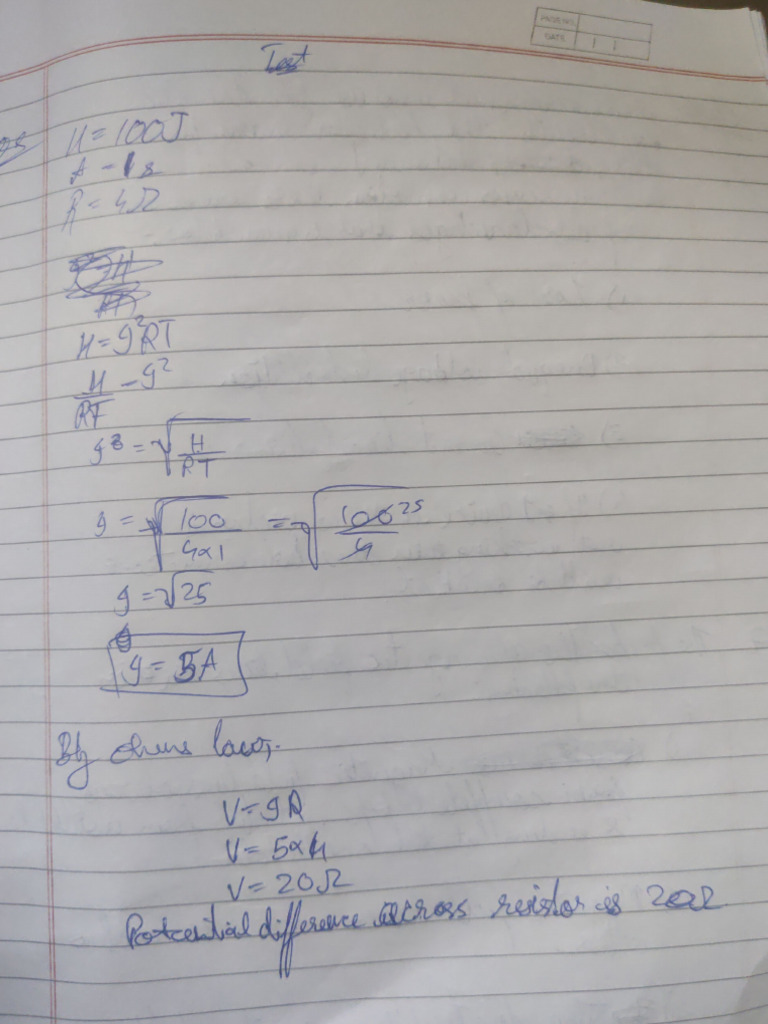 PAGE NO.
DATE
Test
H = 100J
R = 4Ω
H = I²RT
H/RT = I²
I = √H/RT
I = √100/4×1 = √100 25/4
I = √25
I = 5A
By ohms law,
V = IR
V = 5×4
V = 20Ω
Potential difference across resistor is 20Ω